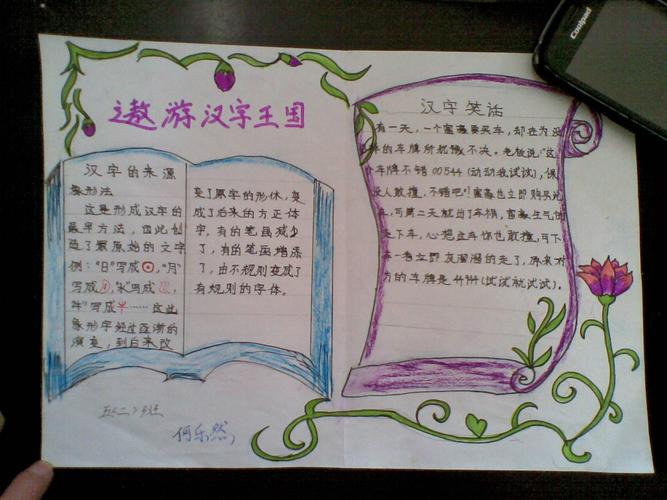 遨游汉字王国
汉字的来源
象形法
这是形成汉字的
最早方法，由此创
造了最原始的文字
例："日"写成，"月"
写成，"水"写成，
"牛"写成……这些
象形字经过逐渐的
演变，到后来改
变了原字的形体，变
成了后来的方正体
字，有的笔画减少
了，有的笔画增添
了，由不规则变成了
有规则的字体。
汉字笑话
有一天，一个富豪要买车，却在为选
的车牌所犹豫不决。老板说："这
个车牌不错00544（动动我试试），保
没人敢撞，不错吧！富豪也立即购买
车，可第二天就出了车祸，富豪生气的
走下车，心想这车你也敢撞，可下
车一看立即灰溜溜的走了，原来对
方的车牌是4444（试试就试试）。
五（二）班
何乐然
Coolpad